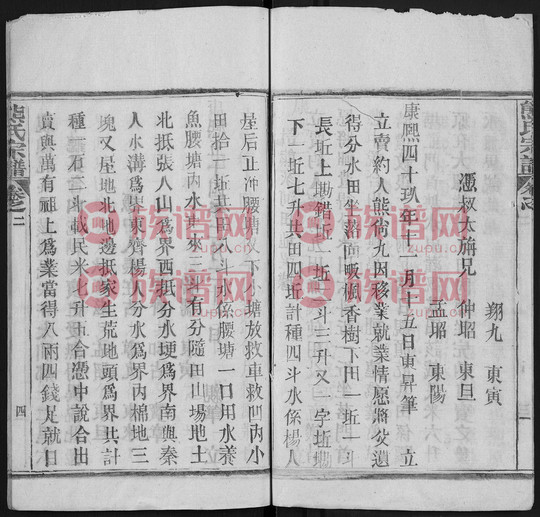 熊氏宗譜
翔九 東寅
憑叔大旂兄 仲昭 東旦
孟昭 東陽
康熙四十玖年 二月 五日東昇筆 立
立賣約人熊尙九因移業就業情愿將父遺
得分水田坐落 香樹下田一坵一斗
長坵上墈錯坵一坵 斗三升又一字坵墈
下一坵七升共田四坵計種四斗水係楊人
屋后正冲腰塘 下小塘放救車救凹內小
田拾一坵共 八斗水係腰塘一口用水養
魚腰塘內水 來 有分隨田山塲地土
北抵張八山爲界西抵分水埂爲界南與秦
人水溝爲界東齊楊人分水爲界內棉地三
塊又屋地北地邊抵家生荒地頭爲界共計
種一石二斗載民米七升五合憑中說合出
賣與萬有祖上爲業當得八兩四錢足就日
熊氏宗譜
卷之二
四